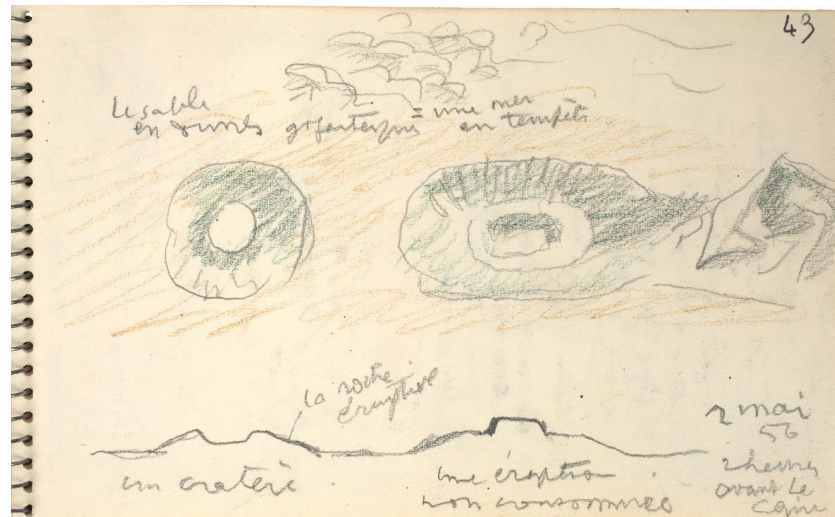 43
Le sable
en dunes gigantesques = une mer
en tempête
la roche
éruptive
un cratère
une éruption
non consommée
2 mai
56
2 heures
avant Le
Caire